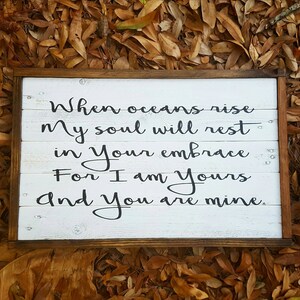 When oceans rise
My soul will rest
in Your embrace
For I am Yours
And You are mine.